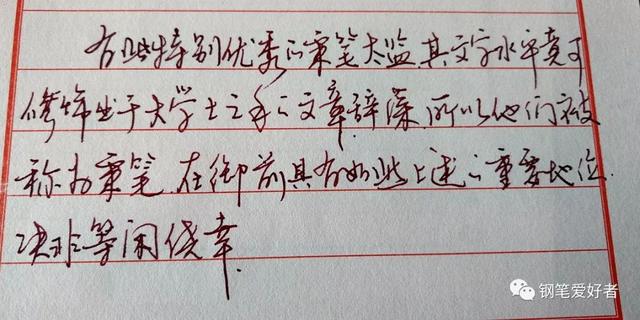 有些特别优秀的秉笔太监,其文字水平竟可
修饰出于大学士之手的文章辞藻.所以他们被
称为秉笔.在御前具有如此上述的重要地位.
决非等闲侥幸.
钢笔爱好者